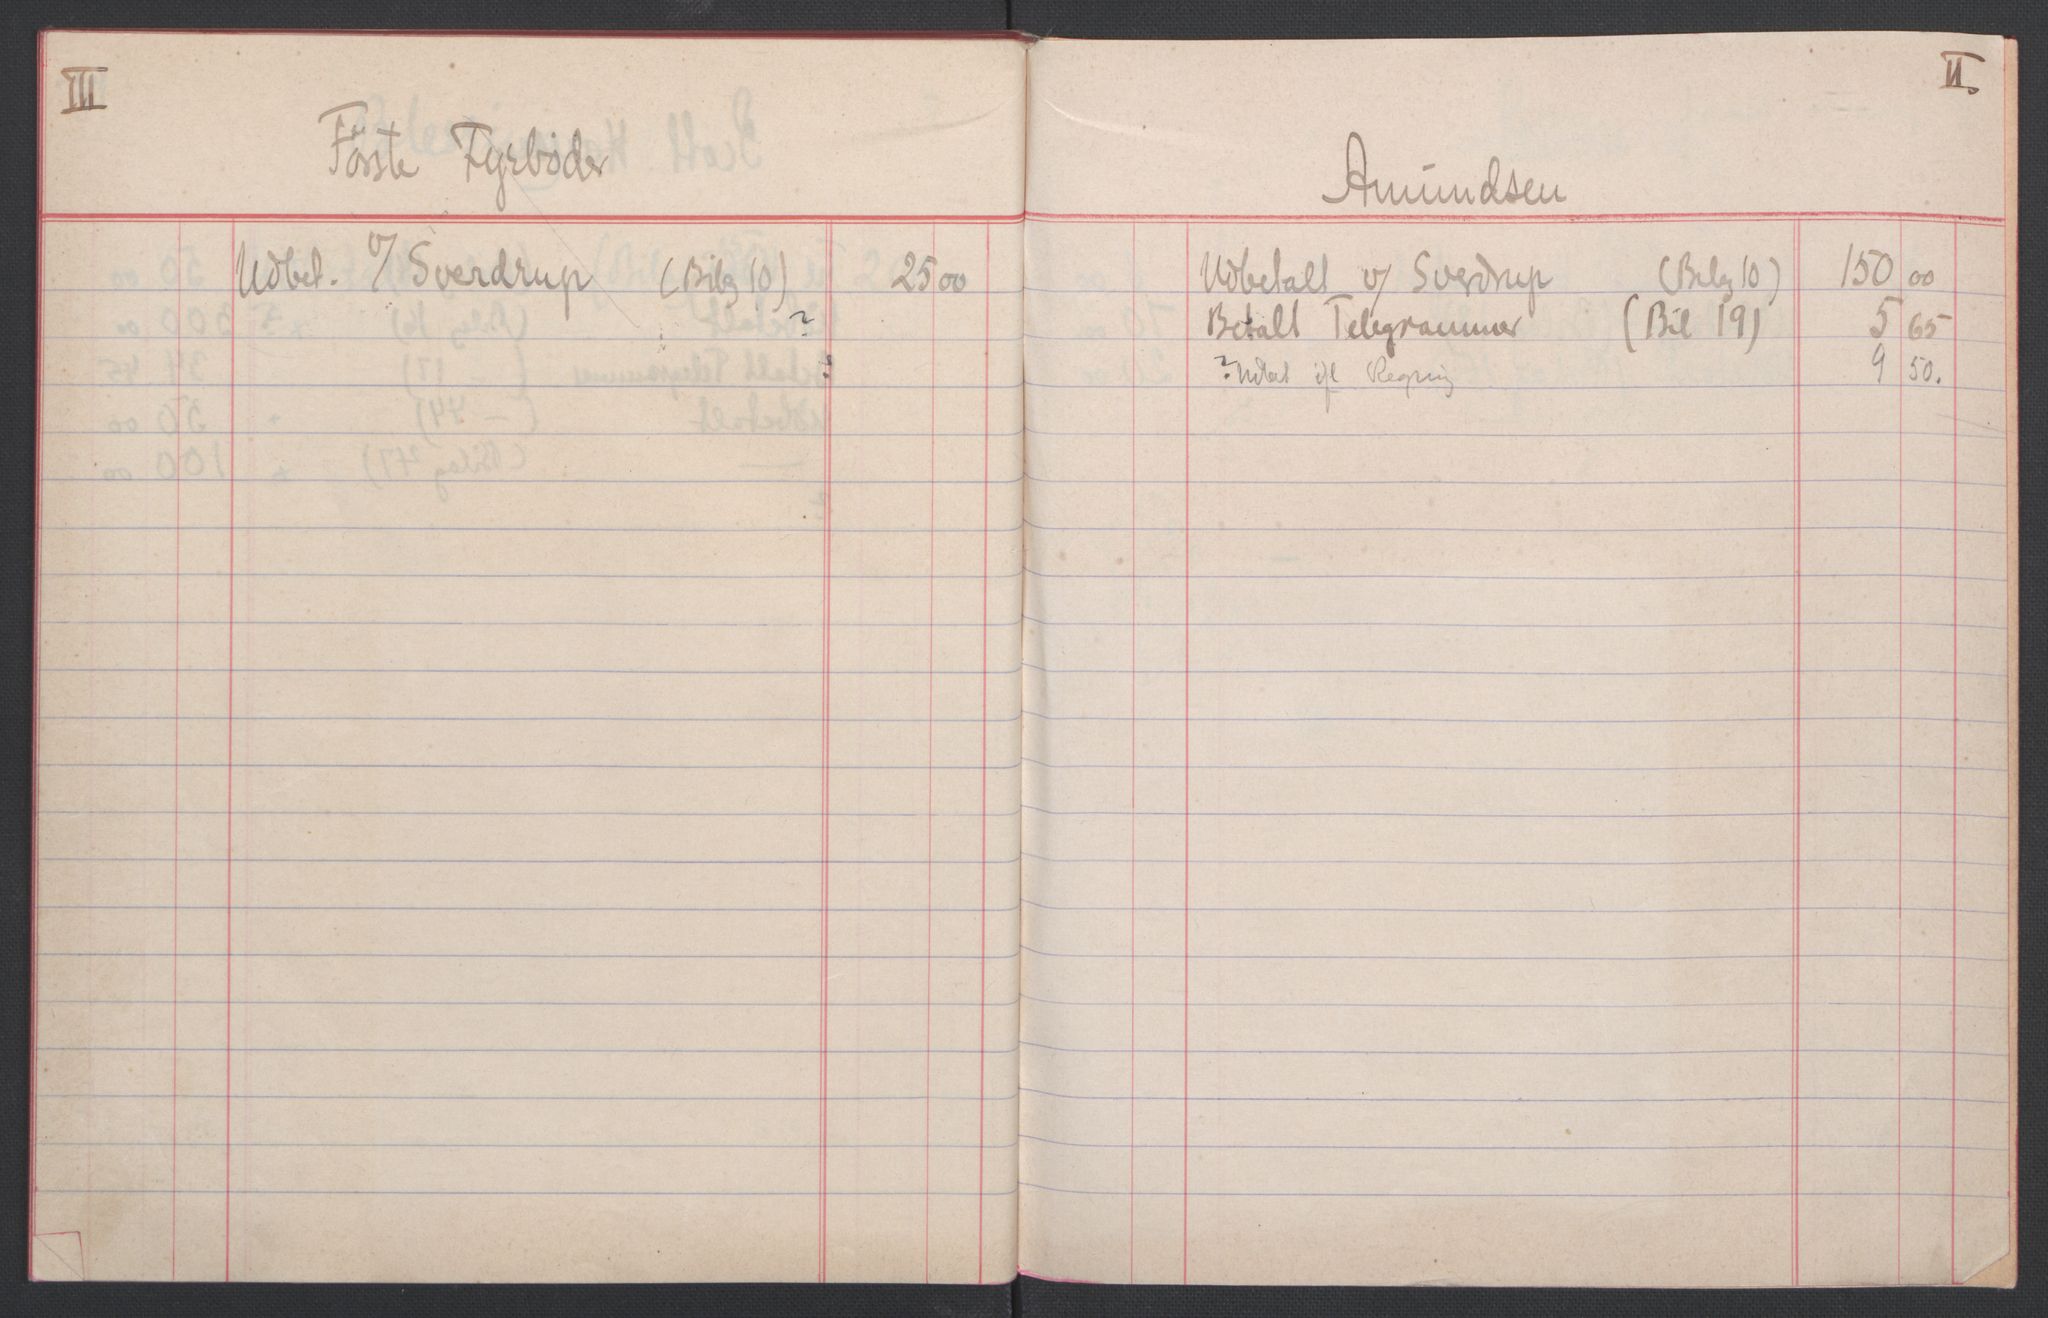 III
Förste Fyrböder
Udbet. v/ Sverdrup (Bilg 10) 25 00
?
II.
Amundsen
Udbetalt v/ Sverdrup (Bilg 10) 150 00
Betalt Telegrammer (Bil 19) 5 65
? Udbet ifl Regning 9 50.